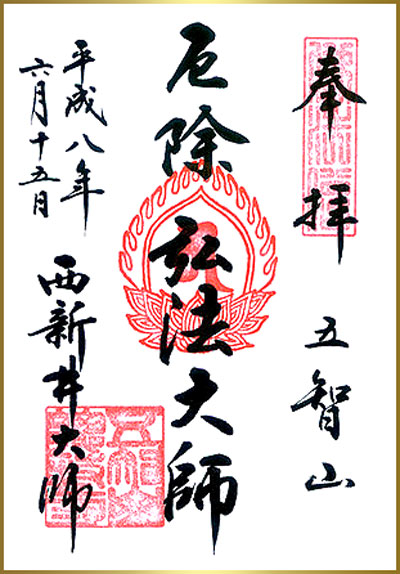 奉拝
五智山
厄除弘法大師
平成八年
六月十五日
西新井大師